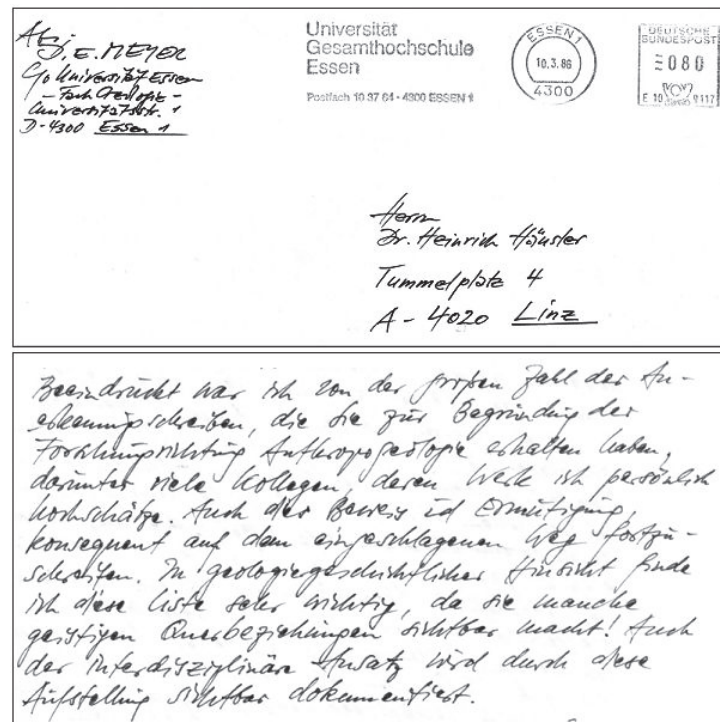 Abs.:
D. E. MEYER
c/o Universität Essen
- Fach Geologie -
Universitätsstr. 1
D-4300 Essen 1
Universität
Gesamthochschule
Essen
Postfach 10 37 64 · 4300 ESSEN 1
ESSEN 1
10.3.86
4300
DEUTSCHE
BUNDESPOST
080
E 10 9117
Herrn
Dr. Heinrich Häusler
Tummelplatz 4
A - 4020 Linz
Beeindruckt war ich von der großen Zahl der An-
erkennungsschreiben, die Sie zur Begründung der
Forschungsrichtung Anthropogeologie erhalten haben,
darunter viele Kollegen, deren Werk ich persönlich
hochschätze. Auch dies Beweis und Ermutigung,
konsequent auf dem eingeschlagenen Weg fortzu-
schreiten. In geologiegeschichtlicher Hinsicht finde
ich diese Liste sehr wichtig, da sie manche
geistigen Querbeziehungen sichtbar macht! Auch
der interdisziplinäre Ansatz wird durch diese
Aufstellung sichtbar dokumentiert.